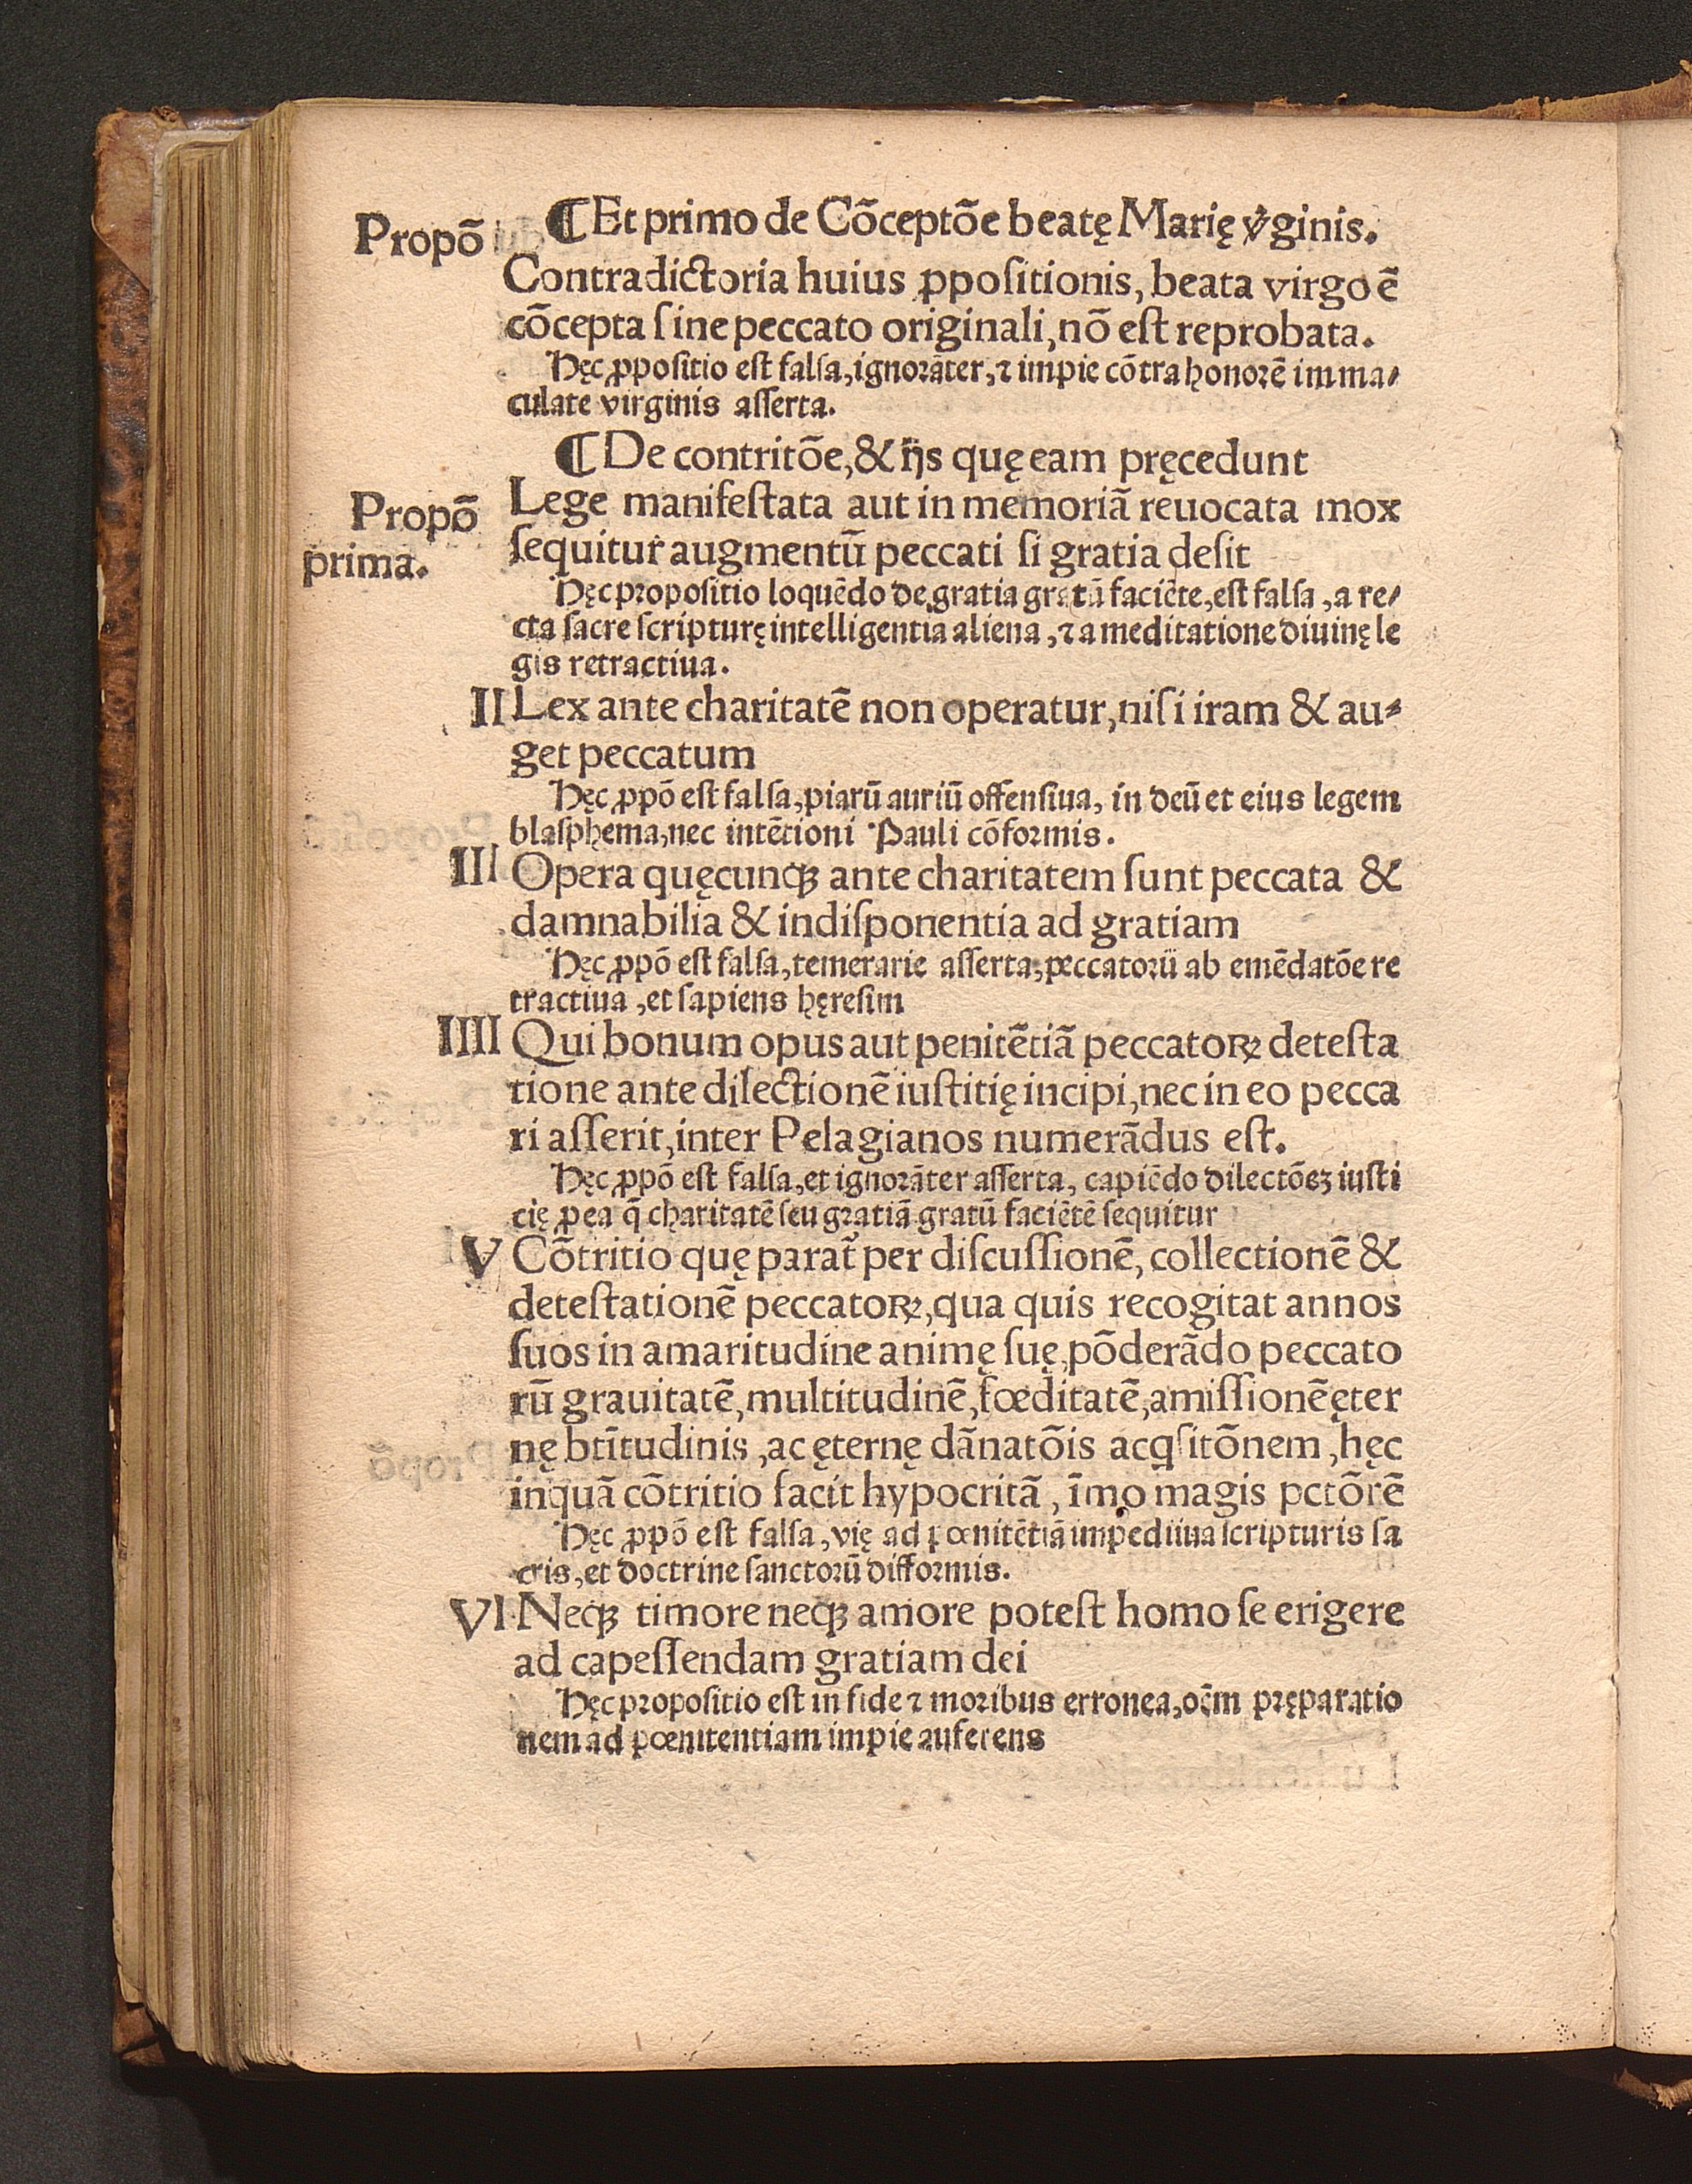 Propõ ¶ Et primo de Cõceptõe beatę Marię v̄ginis.
Contradictoria huius ꝓpoſitionis, beata virgo ē
cõcepta ſine peccato originali, nõ eſt reprobata.
Hęc ꝓpoſitio eſt falſa, ignorãter, ⁊ impie cõtra honorē imma⸗
culate virginis aſſerta.
¶ De contritõe, & ijs quę eam pręcedunt
Propõ prima. Lege manifeſtata aut in memoriã reuocata mox
ſequitur augmentũ peccati ſi gratia deſit
Hęc propoſitio loquẽdo de gratia gratũ faciẽte, eſt falſa, a re⸗
cta ſacre ſcripturę intelligentia aliena, ⁊ a meditatione diuinę le
gis retractiua.
II Lex ante charitatẽ non operatur, niſi iram & au⸗
get peccatum
Hęc ꝓpõ eſt falſa, piarũ auriũ offenſiua, in deũ et eius legem
blaſphema, nec intẽtioni Pauli cõformis.
III Opera quęcunqꝫ ante charitatem ſunt peccata &
damnabilia & indiſponentia ad gratiam
Hęc ꝓpõ eſt falſa, temerarie aſſerta, peccatorũ ab emẽdatõe re
tractiua, et ſapiens hęreſim
IIII Qui bonum opus aut penitẽtiã peccatoꝝ deteſta
tione ante dilectionẽ iuſtitię incipi, nec in eo pecca
ri aſſerit, inter Pelagianos numerãdus eſt.
Hęc ꝓpõ eſt falſa, et ignorãter aſſerta, capiẽdo dilectõeꝫ iuſti
cię ꝓ ea q̃ charitatẽ ſeu gratiã gratũ faciẽtẽ ſequitur
V Cõtritio quę parat᷑ per diſcuſſionẽ, collectionẽ &
deteſtationẽ peccatoꝝ, qua quis recogitat annos
ſuos in amaritudine animę ſuę, põderãdo peccato
rũ grauitatẽ, multitudinẽ, fœditatẽ, amiſſionẽ ęter
nę btĩtudinis, ac ęternę dãnatõis acq̃ſitõnem, hęc
inquã cõtritio facit hypocritã, ĩmo magis pctõrẽ
Hęc ꝓpõ eſt falſa, vię ad pœnitẽtiã impeditiua ſcripturis ſa
cris, et doctrine ſanctorũ difformis.
VI Neqꝫ timore neqꝫ amore poteſt homo ſe erigere
ad capeſſendam gratiam dei
Hęc propoſitio eſt in fide ⁊ moribus erronea, oẽm pręparatio
nem ad pœnitentiam impie auferens